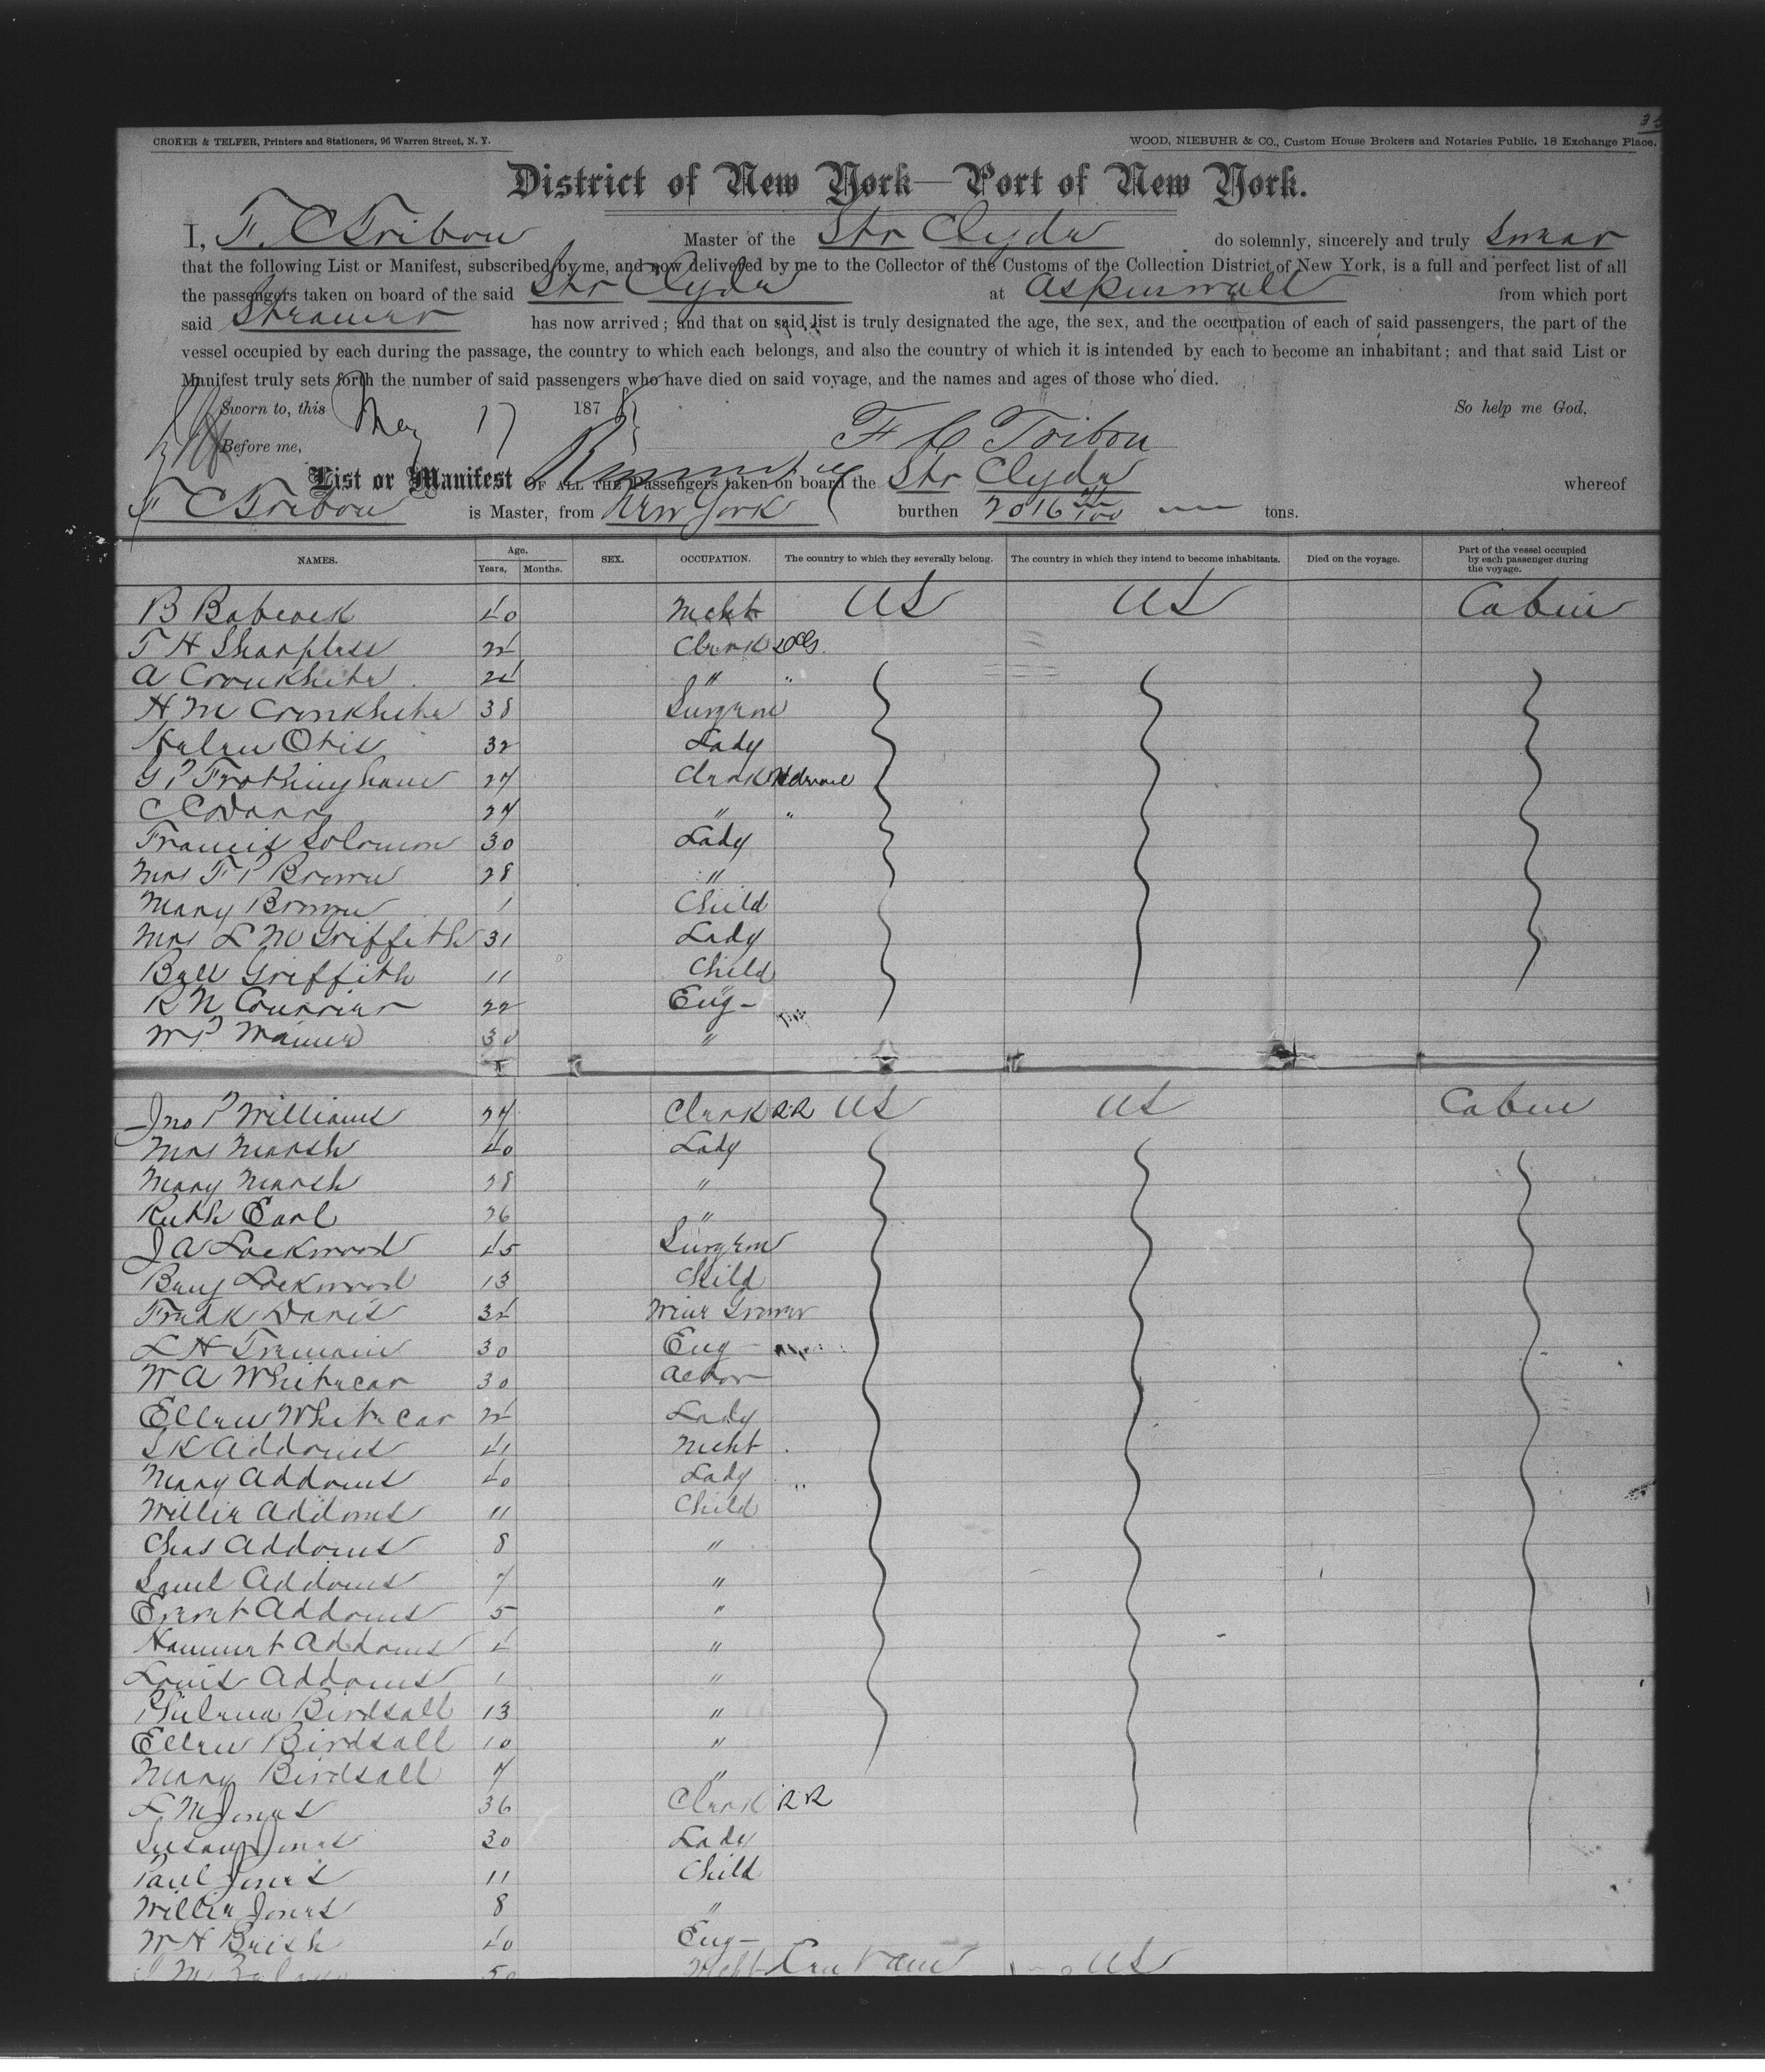 CROKER & TELFER, Printers and Stationers, 96 Warren Street, N. Y. WOOD, NIEBUHR & CO., Custom House Brokers and Notaries Public, 18 Exchange Place.
District of New York—Port of New York.
I, F. C Tribou Master of the Str Clyde do solemnly, sincerely and truly Swear
that the following List or Manifest, subscribed by me, and now delivered by me to the Collector of the Customs of the Collection District of New York, is a full and perfect list of all
the passengers taken on board of the said Str Clyde at Aspinwall from which port
said Steamer has now arrived; and that on said list is truly designated the age, the sex, and the occupation of each of said passengers, the part of the
vessel occupied by each during the passage, the country to which each belongs, and also the country of which it is intended by each to become an inhabitant; and that said List or
Manifest truly sets forth the number of said passengers who have died on said voyage, and the names and ages of those who died.
Sworn to, this May 17 187 So help me God,
Before me, F C Tribou
List or Manifest OF ALL THE Passengers taken on board the Str Clyde whereof
F C Tribou is Master, from New York burthen 2016 tons.
NAMES. Age. Years, Months. SEX. OCCUPATION. The country to which they severally belong. The country in which they intend to become inhabitants. Died on the voyage. Part of the vessel occupied by each passenger during the voyage.
B Babcock 40 Mcht US US Cabin
T H Sharpless 24 Clerk
A Cronkhite 24 " "
H M Cronkhite 38 Surgeon
Helen Otis 32 Lady
G P Frothingham 27 Clerk
C C 27 " "
Francis Solomon 30 Lady
Mrs F P Brown 28 "
Mary Brown 1 Child
Mrs L M Griffith 31 Lady
Bell Griffith 11 Child
R N Courrier 22 Eng-
W P 30 "
Jno P Williams 27 Clerk RR US US Cabin
Mrs Marsh 40 Lady
Mary Marsh 28 "
Ruth Earl 26 "
J A Lockwood 45 Surgeon
Benj Lockwood 13 Child
Frank Davis 34 Wine Grower
L H Tremain 30 Eng-
W A Whitecar 30 Actor
Ellen Whitecar 24 Lady
S K Addoms 41 Mcht
Mary Addoms 40 Lady
Willie Addoms 11 Child
Chas Addoms 8 "
Saml Addoms 7 "
Ernest Addoms 5 "
Addoms 4 "
Louis Addoms 1 "
Birdsall 13 "
Ellen Birdsall 10 "
Mary Birdsall 7 "
L M Jones 36 Clerk RR
Susan Jones 30 Lady
Paul Jones 11 Child
Willie Jones 8 "
W H 40 Eng-
50 Mcht US